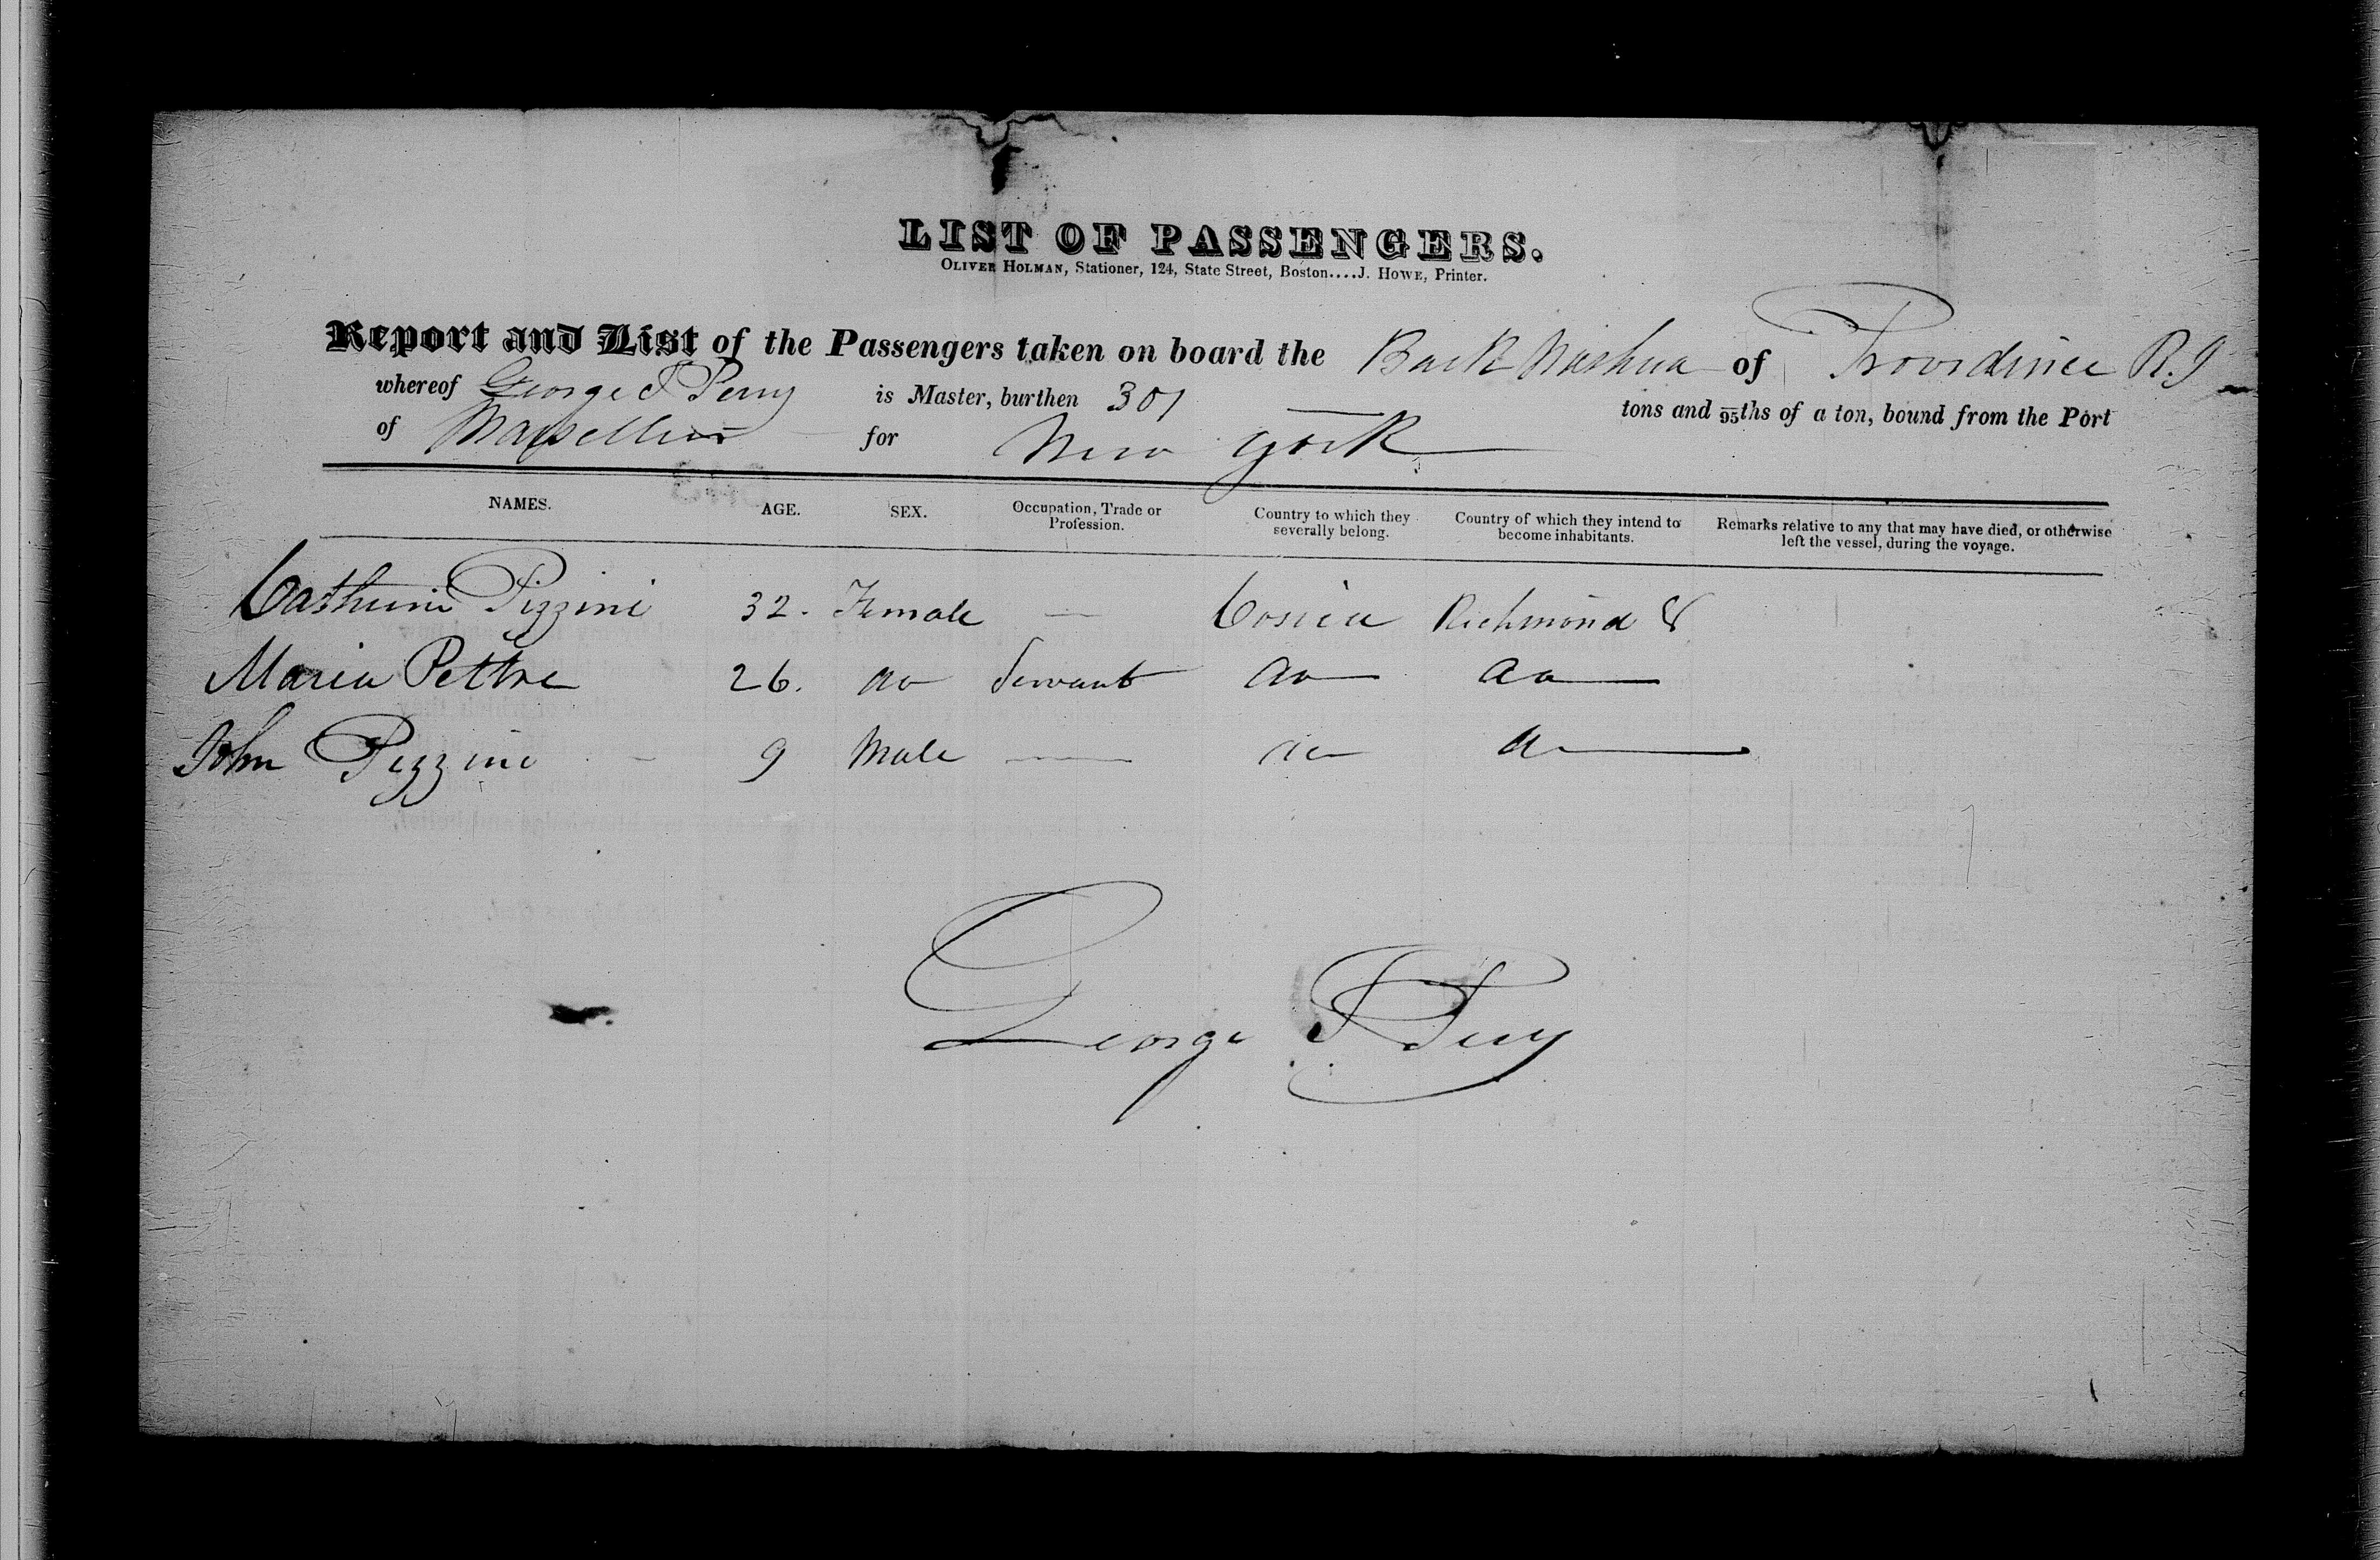 LIST OF PASSENGERS.
OLIVER HOLMAN, Stationer, 124, State Street, Boston....J. HOWE, Printer.
Report and List of the Passengers taken on board the Bark Nashua of Providence R.I
whereof George S Perry is Master, burthen 301 tons and 95ths of a ton, bound from the Port
of Marseilles for New York
NAMES. AGE. SEX. Occupation, Trade or Profession. Country to which they severally belong. Country of which they intend to become inhabitants. Remarks relative to any that may have died, or otherwise left the vessel, during the voyage.
Catherine Pizzini 32. Female — Corsica Richmond V
Maria Pettre 26. do Servant do do
John Pizzini 9 Male — do do
George S Perry